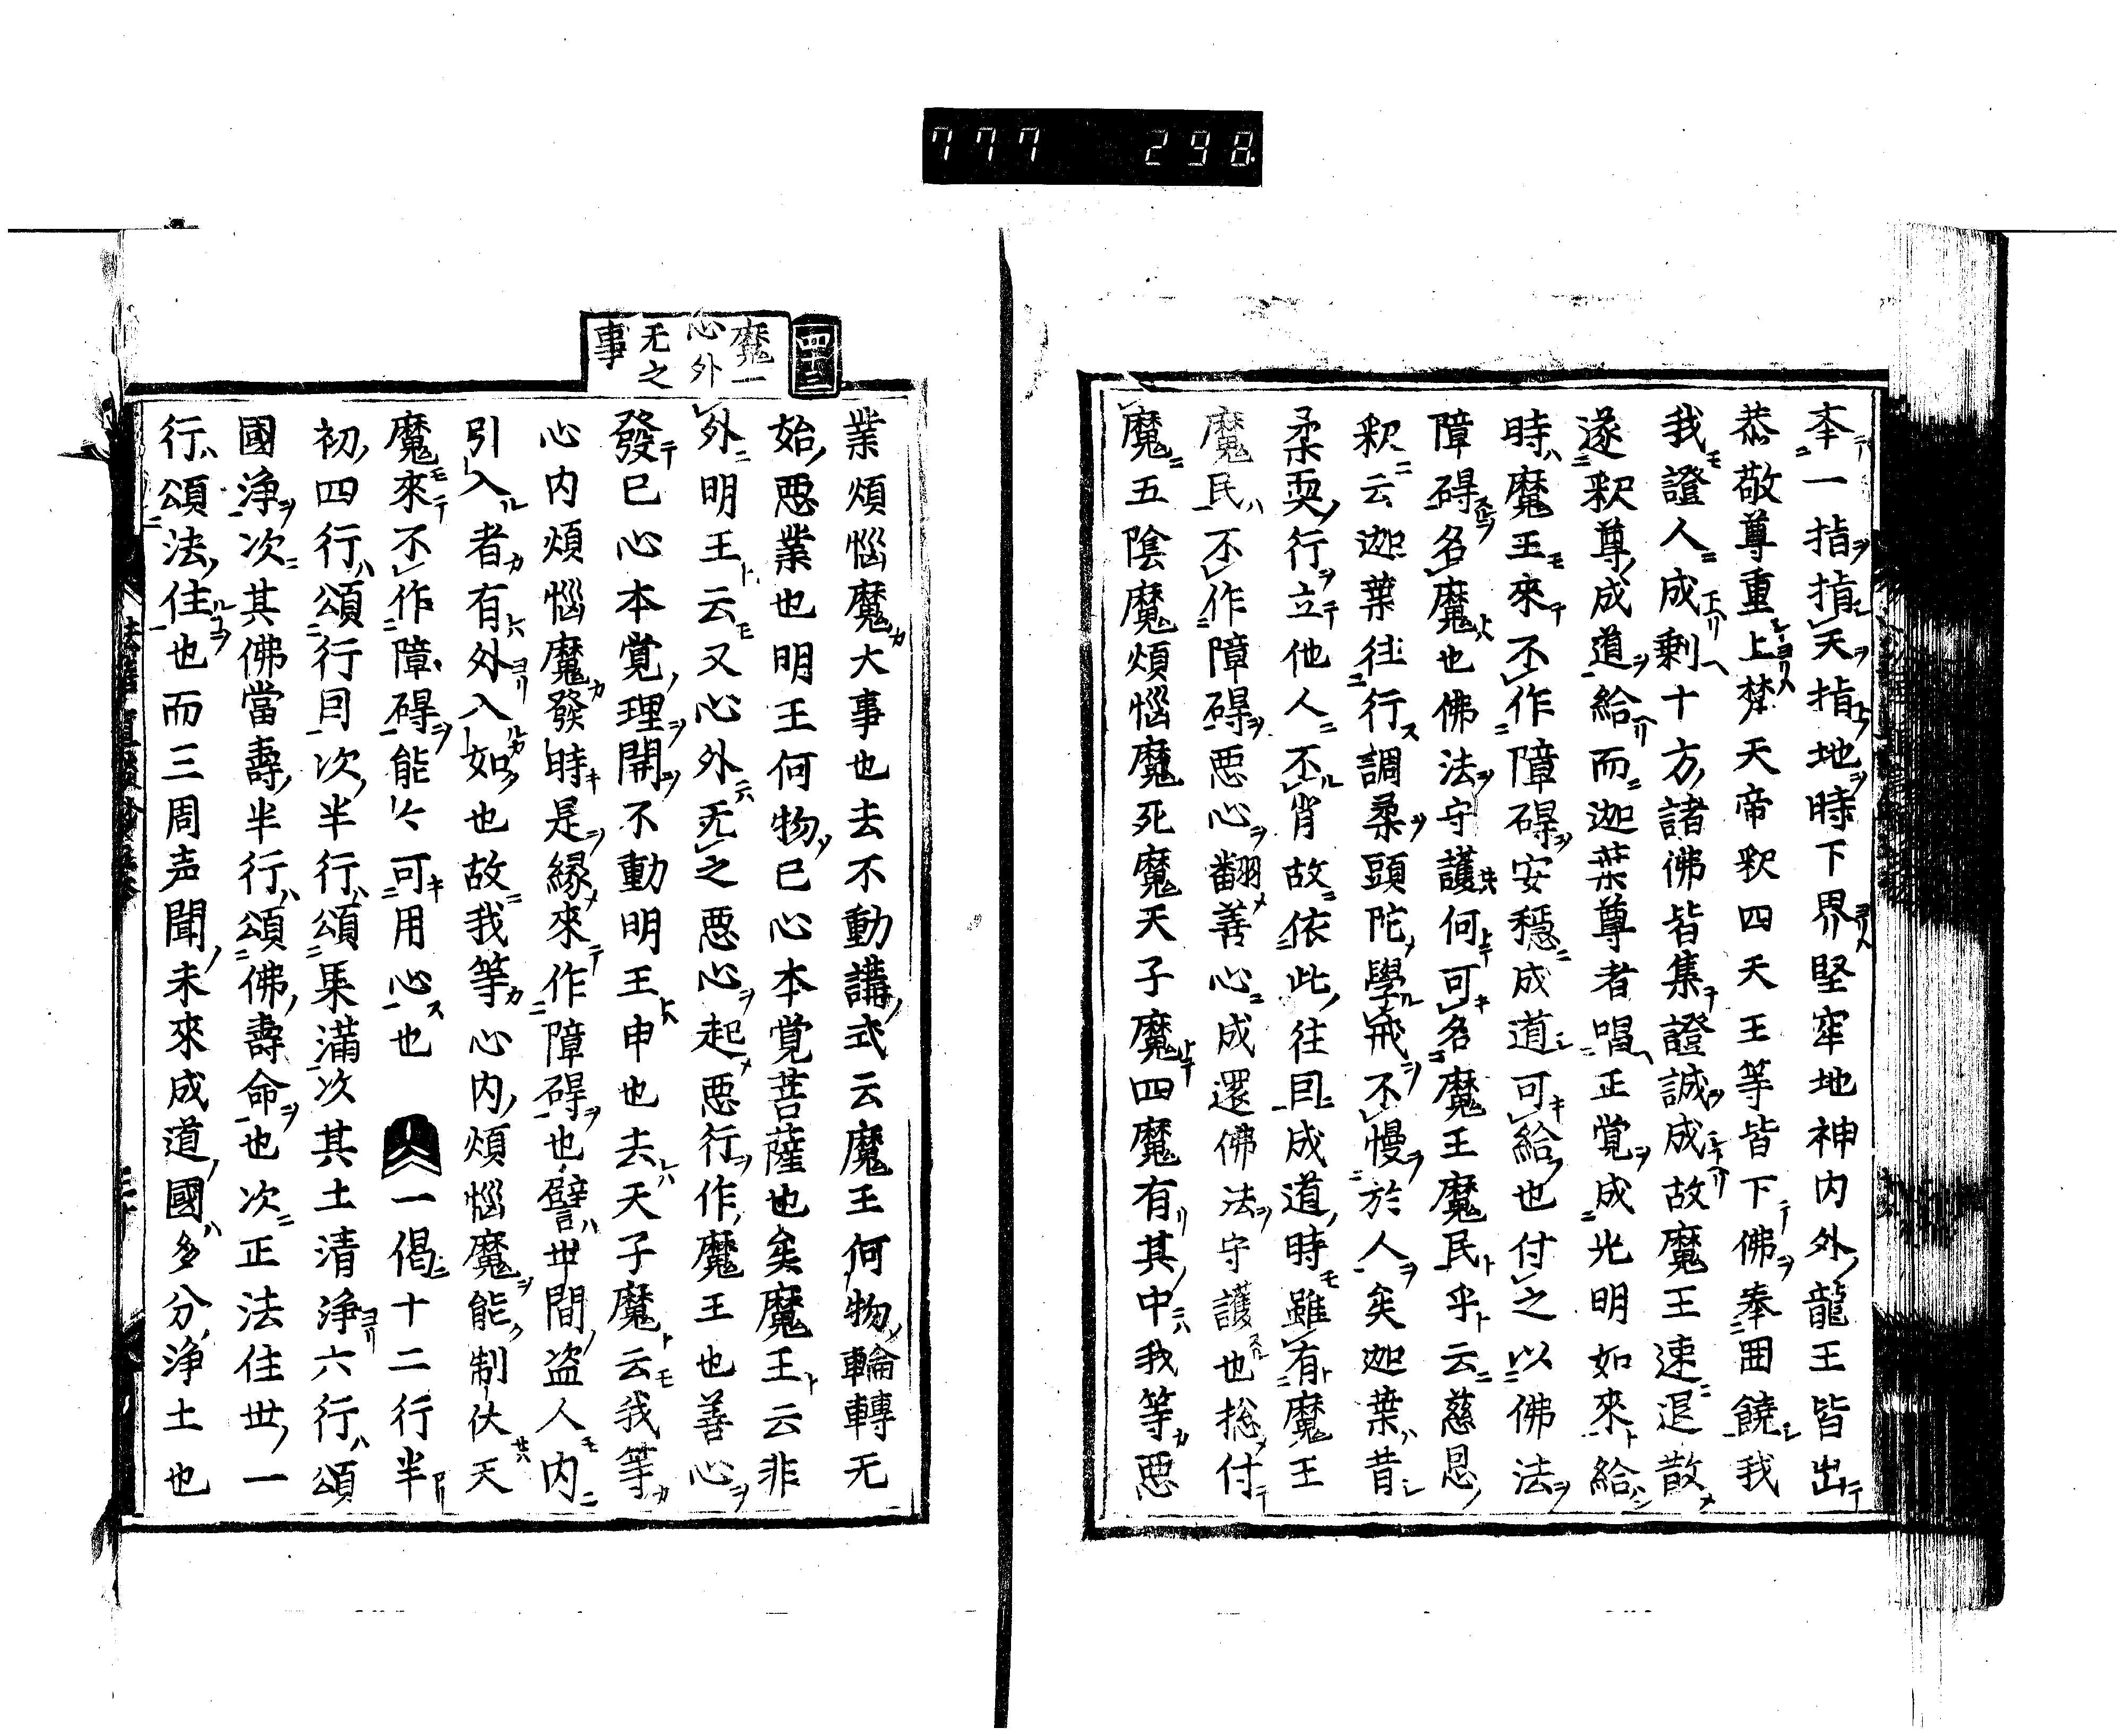 777 298
夲一指指天指地時下界堅牢地神内外龍王皆出
恭敬尊重上梵天帝釈四天王等皆下佛奉囲饒我
我證人成剰十方諸佛皆集證誠成故魔王速退散
遂釈尊成道給而迦葉尊者唱正覚成光明如來給
時魔王來不作障碍安穏成道可給也付之以佛法
障碍名魔也佛法守護何可名魔王魔民乎云慈恩
釈云迦葉往行調柔頭陀學戒不慢於人矣迦葉昔
柔耎行立他人不肖故依此往因成道時雖有魔王
魔民不作障碍悪心翻善心成還佛法守護也捴付
魔五陰魔煩惱魔死魔天子魔四魔有其中我等悪
四十三
魔一
心外
无之
事
業煩惱魔大事也去不動講式云魔王何物輪轉无
始悪業也明王何物已心本覚菩薩也矣魔王云非
外明王云又心外无之悪心起悪行作魔王也善心
發已心本覚理開不動明王申也去天子魔云我等
心内煩惱魔發時是縁來作障碍也譬世間盗人内
引入者有外入如也故我等心内煩惱魔能制伏天
魔來不作障碍能能可用心也 一偈十二行半
初四行頌行因次半行頌果満次其土清浄六行頌
國浄次其佛當壽半行頌佛壽命也次正法住世一
行頌法住也而三周声聞未來成道國多分浄土也